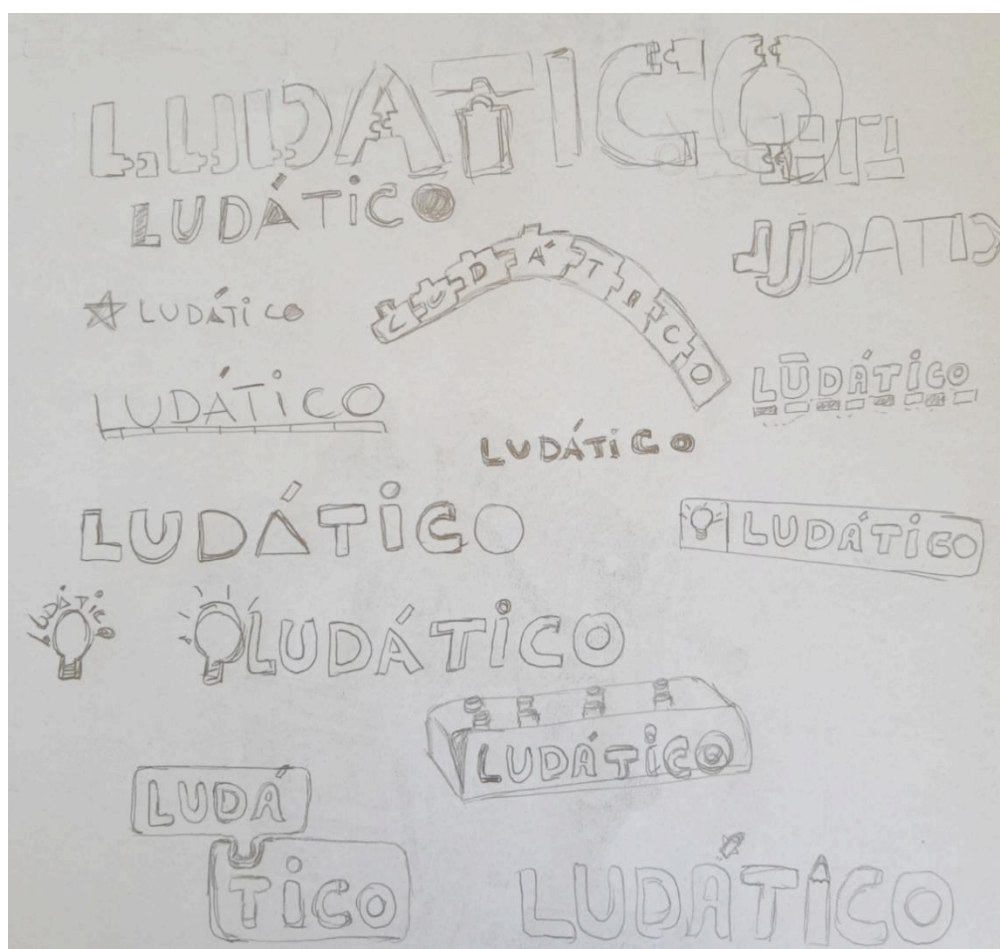 LUDATICO
LUDÁTiCO
LUDÁTICO
LUDÁTiCO
LUDÁTiCO
LŪDÁTiCO
LUDÁTiCO
LUDÁTiCO
LUDÁTiCO
LUDÁTICO
LUDÁTiCO
LUDÁTiCO
LUDÁ
TiCO
LUDÁTICO